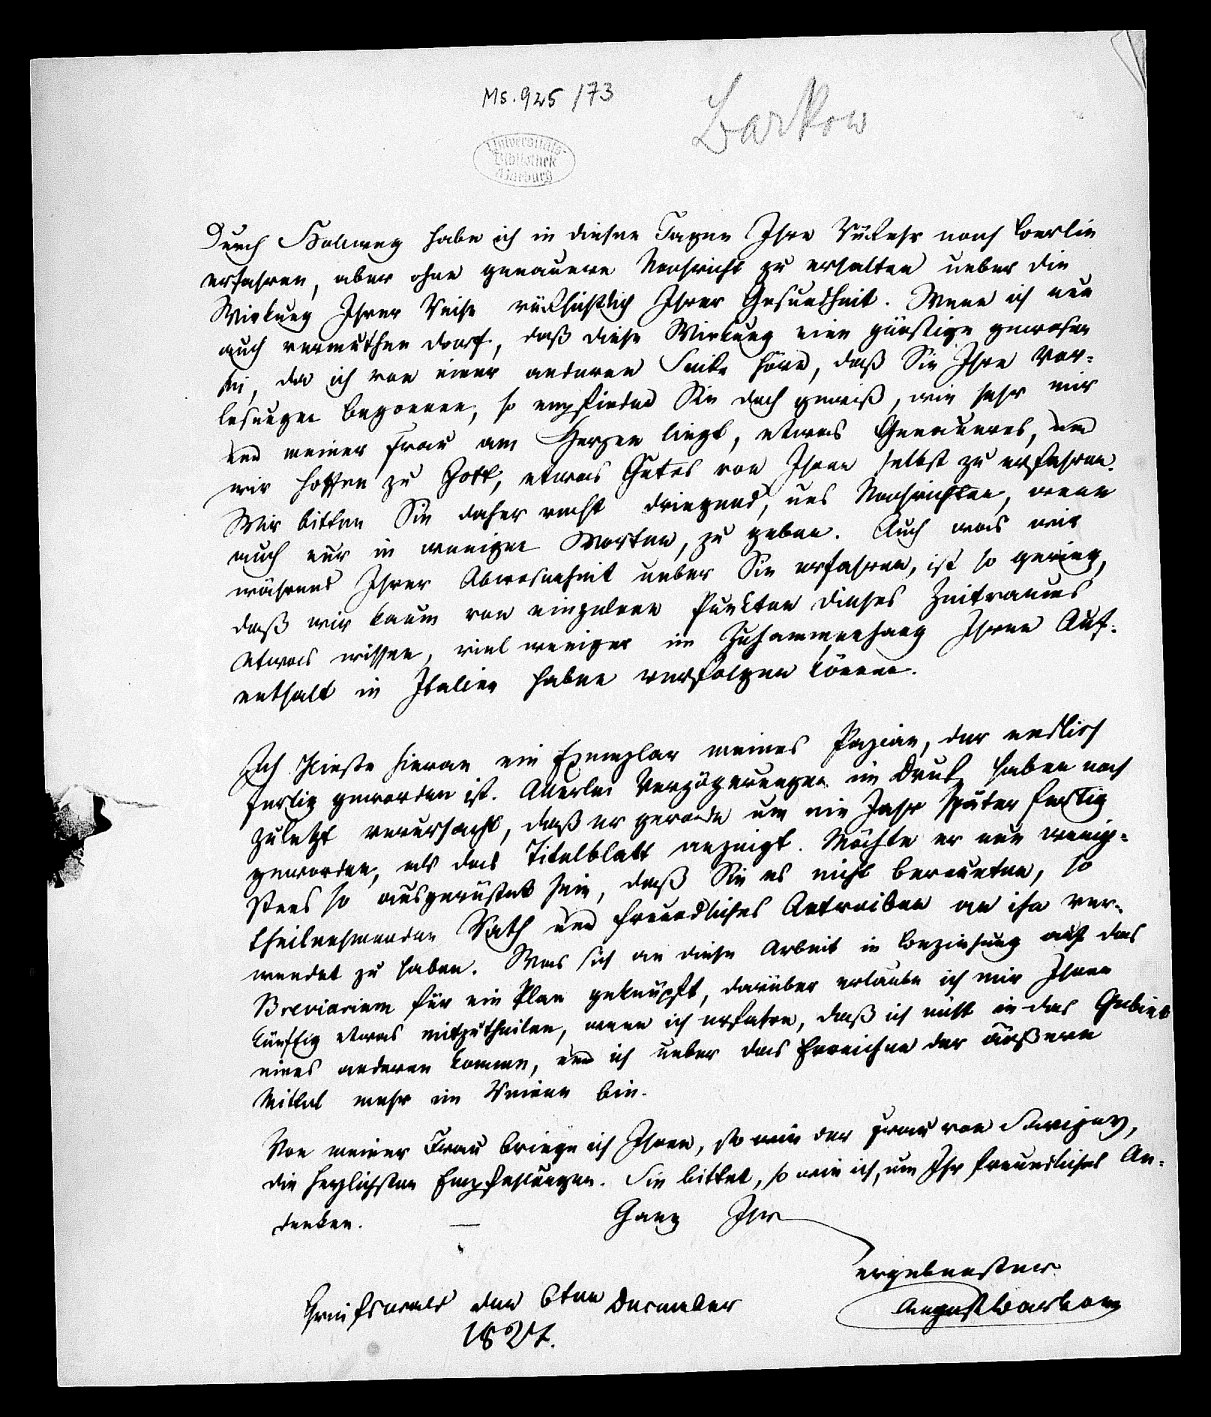 Ms. 925/73
Barkow
Universitäts-
Bibliothek
Marburg
Durch Hollweg habe ich in diesen Tagen Ihre Rückkehr nach Berlin
erfahren, aber ohne genauere Nachricht zu erhalten ueber die
Wirkung Ihrer Reise rücksichtlich Ihrer Gesundheit. Wenn ich nun
auch vermuthen darf, daß diese Wirkung eine günstige gewesen
sei, da ich von einer anderen Seite höre, daß Sie Ihre Vor-
lesungen begonnen, so empfinden Sie doch gewiß, wie sehr mir
und meiner Frau am Herzen liegt, etwas Genaueres, und
wir hoffen zu Gott, etwas Gutes von Ihnen selbst zu erfahren.
Wir bitten Sie daher recht dringend, uns Nachrichten, wenn
auch nur in wenigen Worten, zu geben. Auch was wir
während Ihrer Abwesenheit ueber Sie erfahren, ist so gering,
daß wir kaum von einzelnen Punkten dieses Zeitraumes
etwas wissen, viel weniger im Zusammenhang Ihren Auf-
enthalt in Italien haben verfolgen können.
Ich schließe hieran ein Exemplar meines Papian, der endlich
fertig geworden ist. Allerlei Verzögerungen im Druck haben noch
zuletzt verursacht, daß er gerade um ein Jahr später fertig
geworden, als das Titelblatt anzeigt. Möchte er nun wenig-
stens so ausgerüstet sein, daß Sie es nicht bereueten, so
theilnehmenden Rath und freundliches Antreiben an ihn ver-
wendet zu haben. Was sich an diese Arbeit in Beziehung auf das
Breviarium für ein Plan geknüpft, darüber erlaube ich mir Ihnen
künftig etwas mitzutheilen, wenn ich erfahre, daß ich nicht in das Gebiet
eines anderen komme, und ich ueber das Erreichen der äußern
Mittel mehr im Reinen bin.
Von meiner Frau bringe ich Ihnen, so wie der Frau von Savigny,
die herzlichsten Empfehlungen. Sie bittet, so wie ich, um Ihr freundliches An-
denken. — Ganz Ihr
ergebenster
August Barkow
Greifswald den 6ten December
1827.